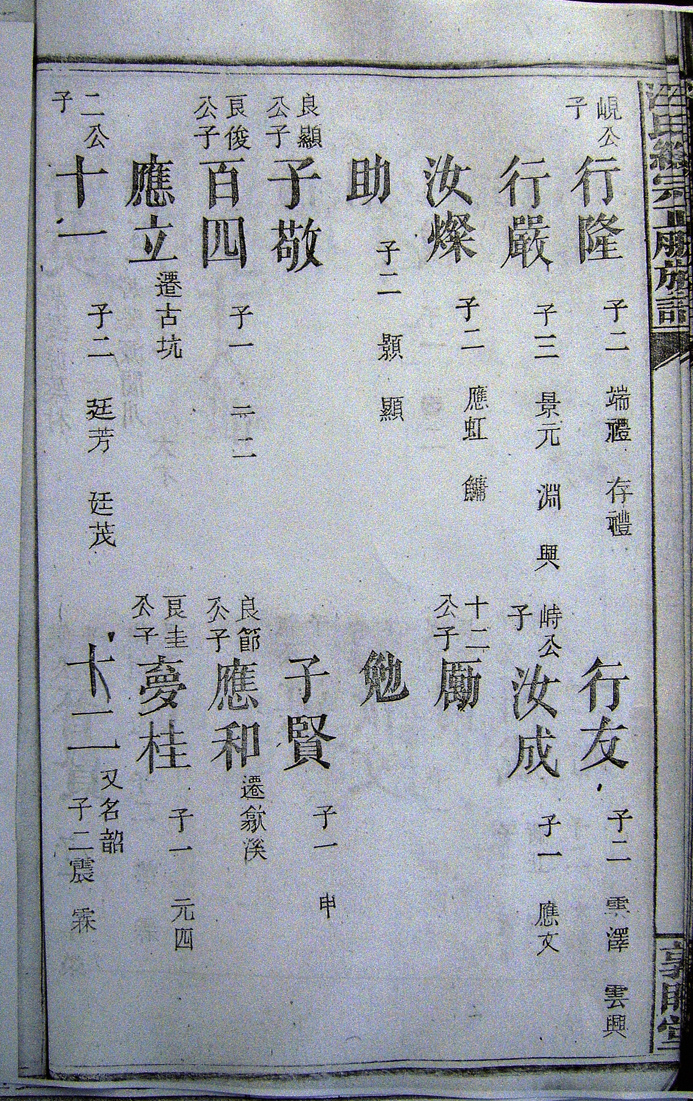 峴公子 行隆 子二 端禮 存禮
行友 子二 雲澤 雲興
行嚴 子三 景元 淵 興
峙公子 汝成 子一 應文
汝燦 子二 應虹 鏞
十二公子 勵
助 子二 顥 顯
勉
良顯公子 子敬
子賢 子一 申
良俊公子 百四 子一 十二
良節公子 應和 遷歙溪
應立 遷古坑
良圭公子 夢桂 子一 元四
二公子 十一 子二 廷芳 廷茂
十二 又名韶 子二 震 霖